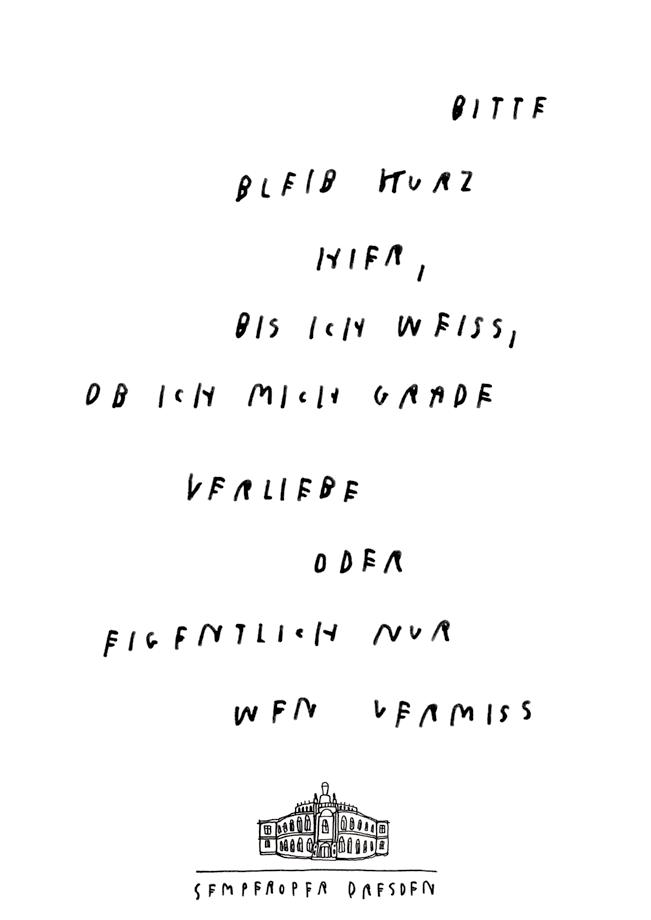 BITTE
BLEIB KURZ
HIER,
BIS ICH WEISS,
OB ICH MICH GRADE
VERLIEBE
ODER
EIGENTLICH NUR
WEN VERMISS
SEMPEROPER DRESDEN